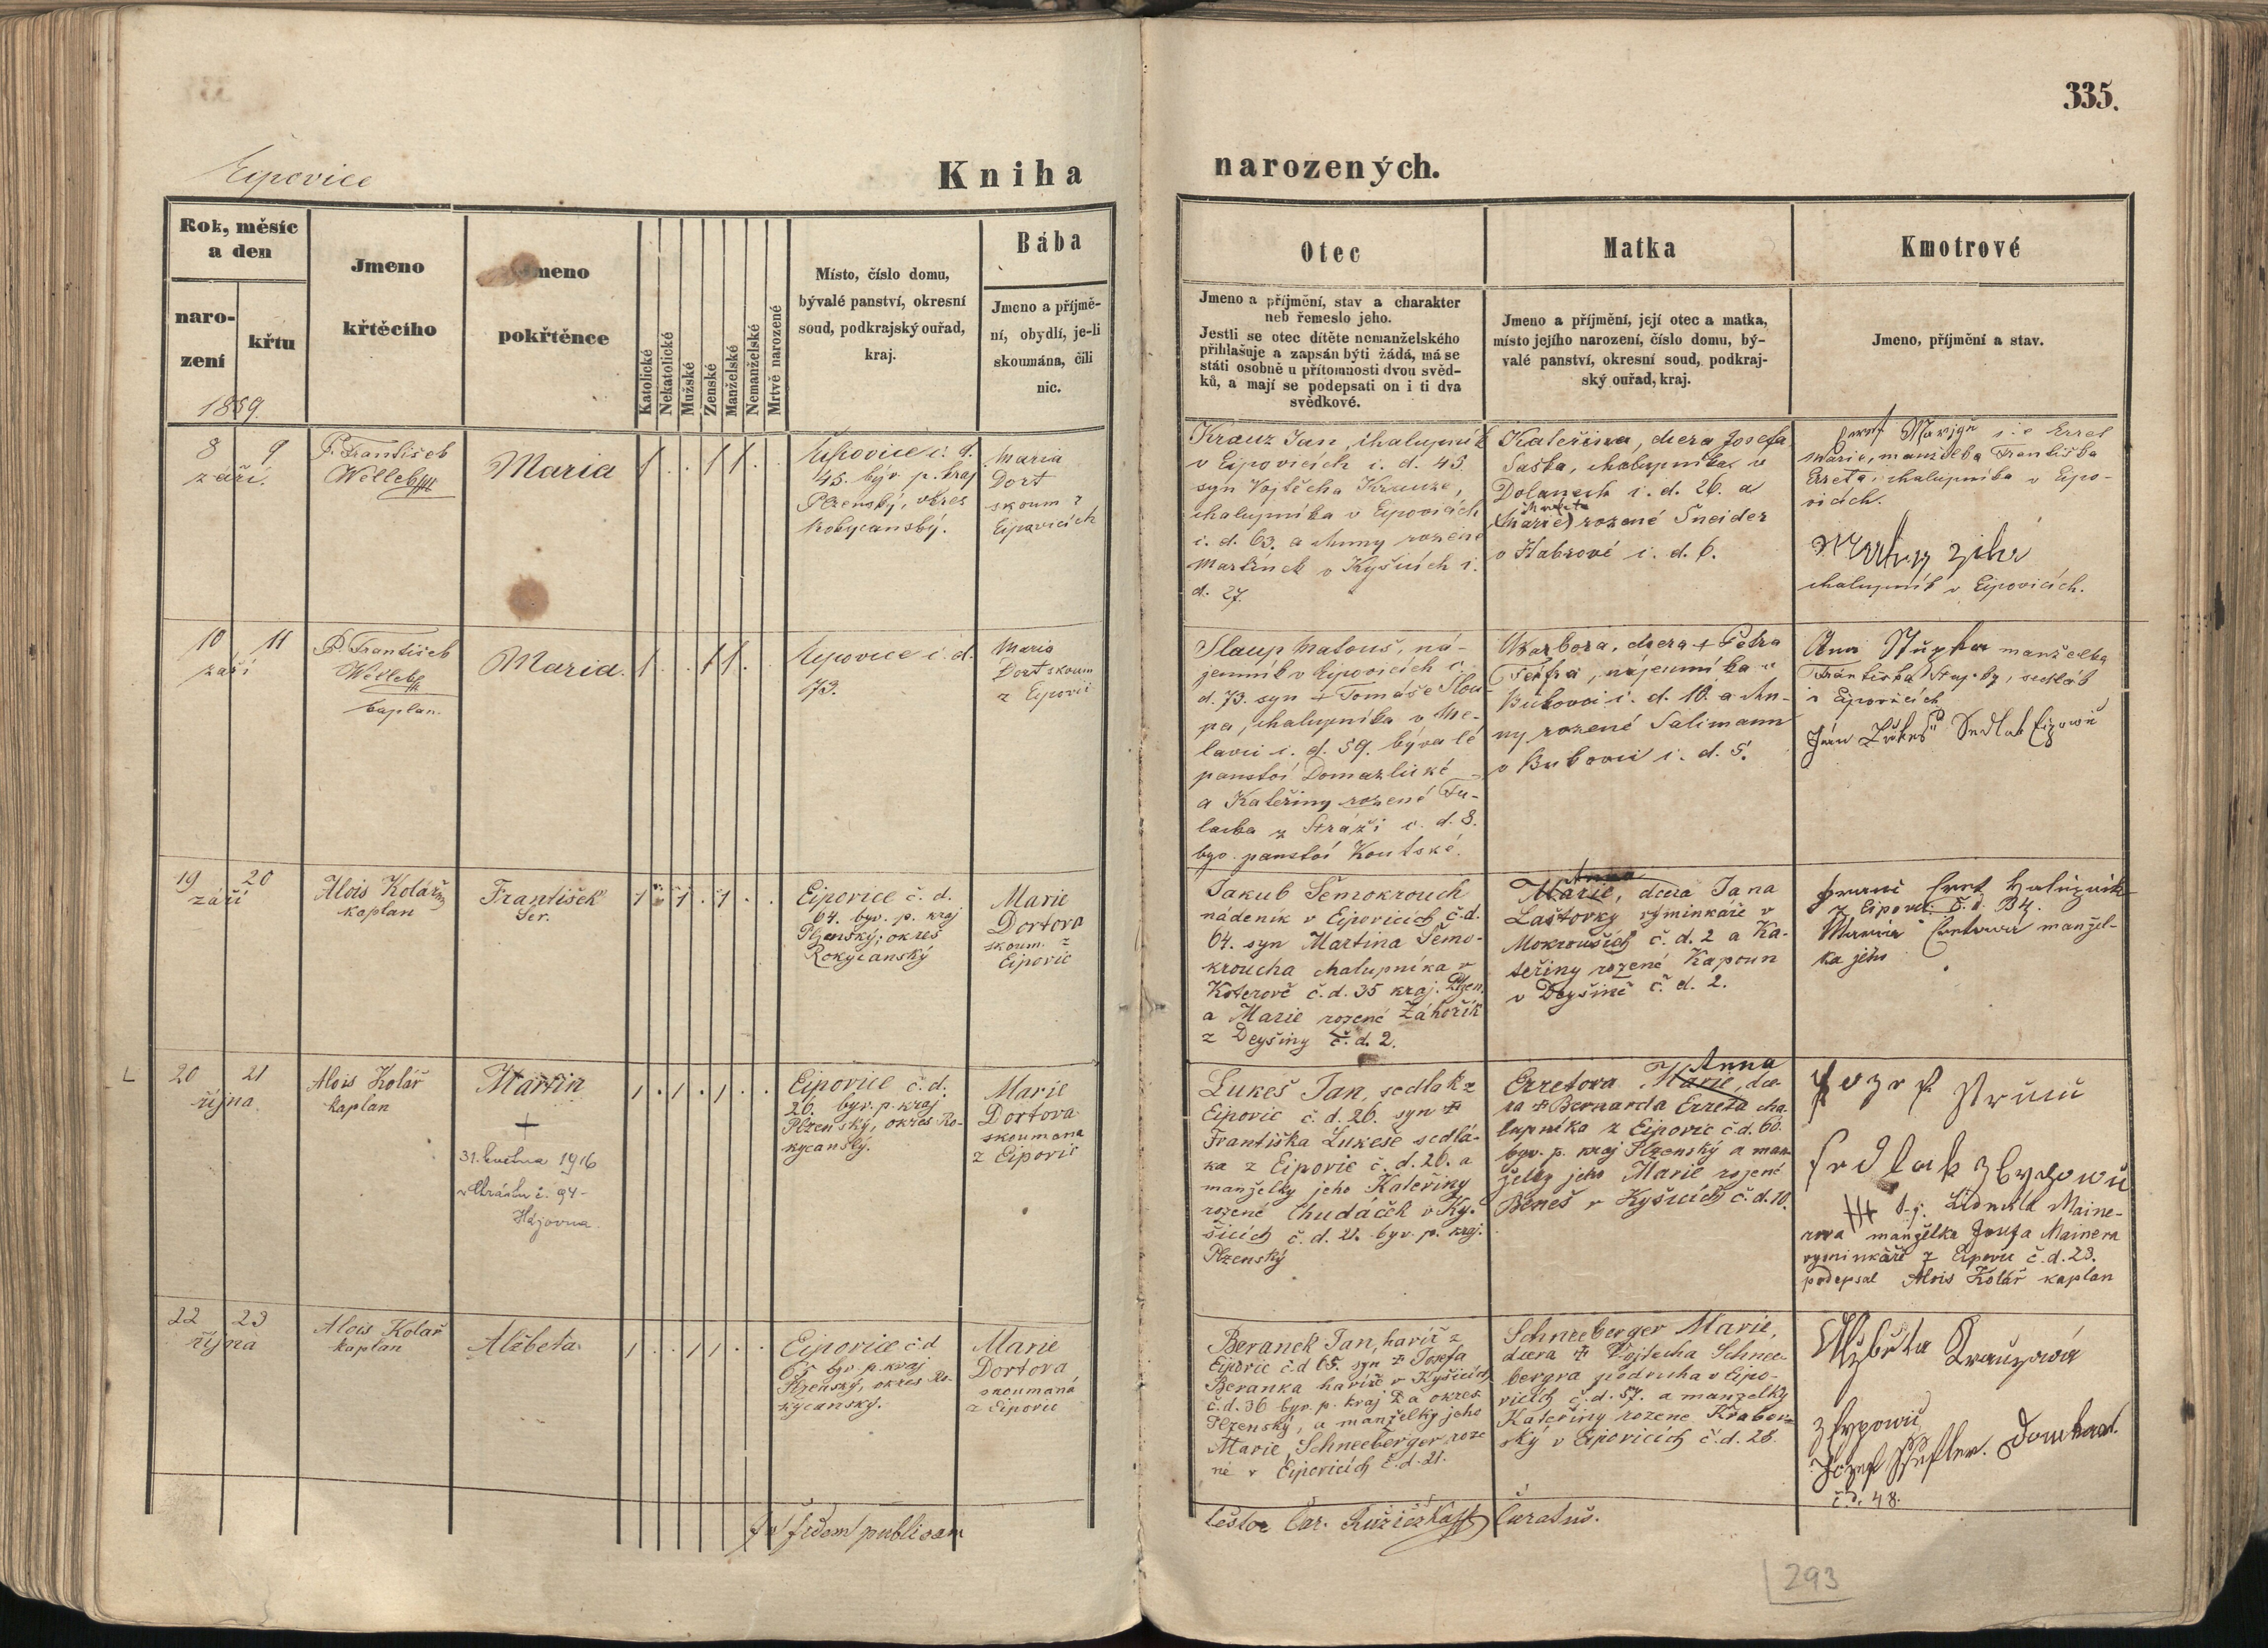 335.
Eipovice
Kniha
narozených.
Rok, měsíc
a den
naro-
zení
křtu
1859.
Jmeno
křtěcího
Jmeno
pokřtěnce
Katolické
Nekatolické
Mužské
Zenské
Manželské
Nemanželské
Mrtvě narozené
Místo, číslo domu,
bývalé panství, okresní
soud, podkrajský ouřad,
kraj.
Bába
Jmeno a příjmě-
ní, obydlí, je-li
skoumána, čili
nic.
Otec
Jmeno a příjmění, stav a charakter
neb řemeslo jeho.
Jestli se otec dítěte nemanželského
přihlašuje a zapsán býti žádá, má se
státi osobně u přítomnosti dvou svěd-
ků, a mají se podepsati on i ti dva
svědkové.
Matka
Jmeno a příjmění, její otec a matka,
místo jejího narození, číslo domu, bý-
valé panství, okresní soud, podkraj-
ský ouřad, kraj.
Kmotrové
Jmeno, příjmění a stav.
8 9
září.
P. František
Welleb
Maria
Eipovice č. d.
45. býv. p. kraj
Plzenský, okres
Rokycanský.
Maria
Dort
skoum z
Eipovicích
Krauz Jan, chalupník
v Eipovicích č. d. 45.
syn Vojtěcha Krauze,
chalupníka v Eipovicích
č. d. 63. a Anny rozené
Martínek v Kyšicích č.
d. 27.
Kateřina, dcera Josefa
Saška, chalupníka v
Dolanech č. d. 26. a
Markéta
(Marie) rozené Sneider
v Habrové č. d. 6.
Marie, manželka Františka
Erreta, chalupníka v Eipo-
vicích.
chalupník v Eipovicích.
10 11
září
P. František
Welleb
kaplan.
Maria.
Eipovice č. d.
73.
Maria
Dort skoum
z Eipovic
Slaup Matouš, ná-
jemník v Eipovicích č.
d. 73. syn + Tomáše Slou-
pa, chalupníka v Me-
lavci č. d. 59. bývalé
panství Domazlické
a Kateřiny rozené Tu-
lacka z Stráži č. d. 8.
býv. panství Koutské.
Barbora, dcera + Petra
nájemníka v
Bukovci č. d. 10. a An-
ny rozené Salimann
v Bukovci č. d. 5.
Ana Stupka manželka
Františka Stupky, sedlák
v Eipovicích
Jan Lukeš Sedlak Eipowic
19 20
září
Alois Kolář
kaplan
František
Ser.
Eipovice č. d.
64. byv. p. kraj
Plzenský; okres
Rokycanský
Marie
Dortova
skoum. z
Eipovic
Jakub Šemokrouch
nádeník v Eipovicích č.d.
64. syn Martina Šemo-
kroucha chalupníka v
Koterově č.d. 35 kraj. Plzen.
a Marie rozené Záhořík
z Deyšiny č. d. 2.
Anna
Marie, dcera Jana
Laštovky vyminkáře v
Mokroušich č. d. 2 a Ka-
teřiny rozené Kapoun
v Deyšině č. d. 2.
manžel-
ka jeho
20 21
října.
Alois Kolář
kaplan
Martin
+
31. května 1916
v Chrástu č. 94-
Hájovna.
Eipovice č. d.
26. byv. p. kraj
Plzenský, okres Ro-
kycanský.
Marie
Dortova
skoumana
z Eipovic
Lukeš Jan, sedlak z
Eipovic č. d. 26. syn +
Františka Lukeše sedlá-
ka z Eipovic č. d. 26. a
manželky jeho Kateřiny
rozené Chudáček v Ky-
šicích č. d. 21. byv. p. kraj.
Plzenský
Anna
Erretova Marie, dce-
ra + Bernarda Erreta cha-
lupníka z Eipovic č.d. 60.
býv. p. kraj Plzenský a man-
želky jeho Marie rozené
Beneš v Kyšicích č. d. 10.
+++ Lidmila Maine-
rova manželka Josefa Mainera
vyminkáře z Eipovic č. d. 23.
podepsal Alois Kolář kaplan
22 23
října
Alois Kolář
kaplan
Alžbeta
Eipovice č.d
65 byv. p. kraj
Plzenský, okres Ro-
kycanský.
Marie
Dortova
skoumaná
z Eipovic
Beranek Jan, havíř z
Eipovic č.d 65. syn + Josefa
Beranka havíře v Kyšicích
č.d. 36 byv. p. kraj a okres
Plzenský, a manželky jeho
Marie, Schneeberger roze
né v Eipovicích č. d. 21.
Schneeberger Marie,
dcera + Vojtěcha Schnee-
bergra podruha v Eipo-
vicích č. d. 57. a manzelky
Kateřiny rozene Krabov-
ský v Eipovicích č. d. 28.
Alžbeta Krauzowá
z Eypowic
č. d. 48.
In fidem publicam
testor Car. Růžička Curatus.
293